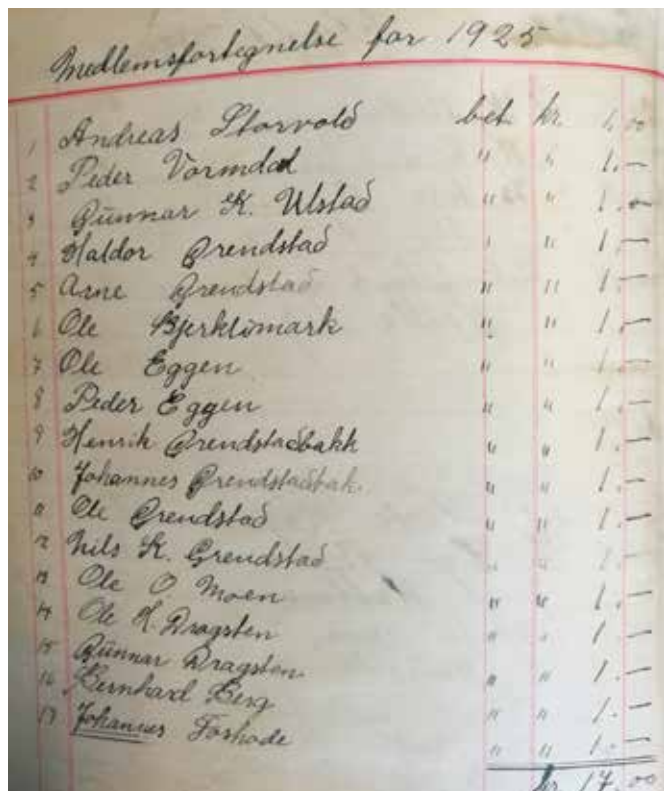 Medlemsfortegnelse for 1925
1 Andreas Storvold bet. kr. 1,00
2 Peder Vormdal " " 1.—
3 Gunnar K. Ulstad " " 1.—
4 Haldor Grendstad " " 1.—
5 Arne Grendstad " " 1.—
6 Ole Bjerklimark " " 1.—
7 Ole Eggen " " 1.—
8 Peder Eggen " " 1.—
9 Henrik Grendstadbakk " " 1.—
10 Johannes Grendstadbak. " " 1.—
11 Ole Grendstad " " 1.—
12 Nils K. Grendstad " " 1.—
13 Ole O. Moen " " 1.—
14 Ole K. Dragsten " " 1.—
15 Gunnar Dragsten " " 1.—
16 Bernhard Berg " " 1.—
17 Johannes Forhode " " 1.—
kr 17.00